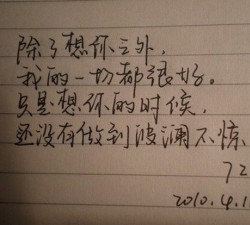 除了想你之外，
我的一切都很好。
只是想你的时候，
还没有做到波澜不惊
72
2010.4.1